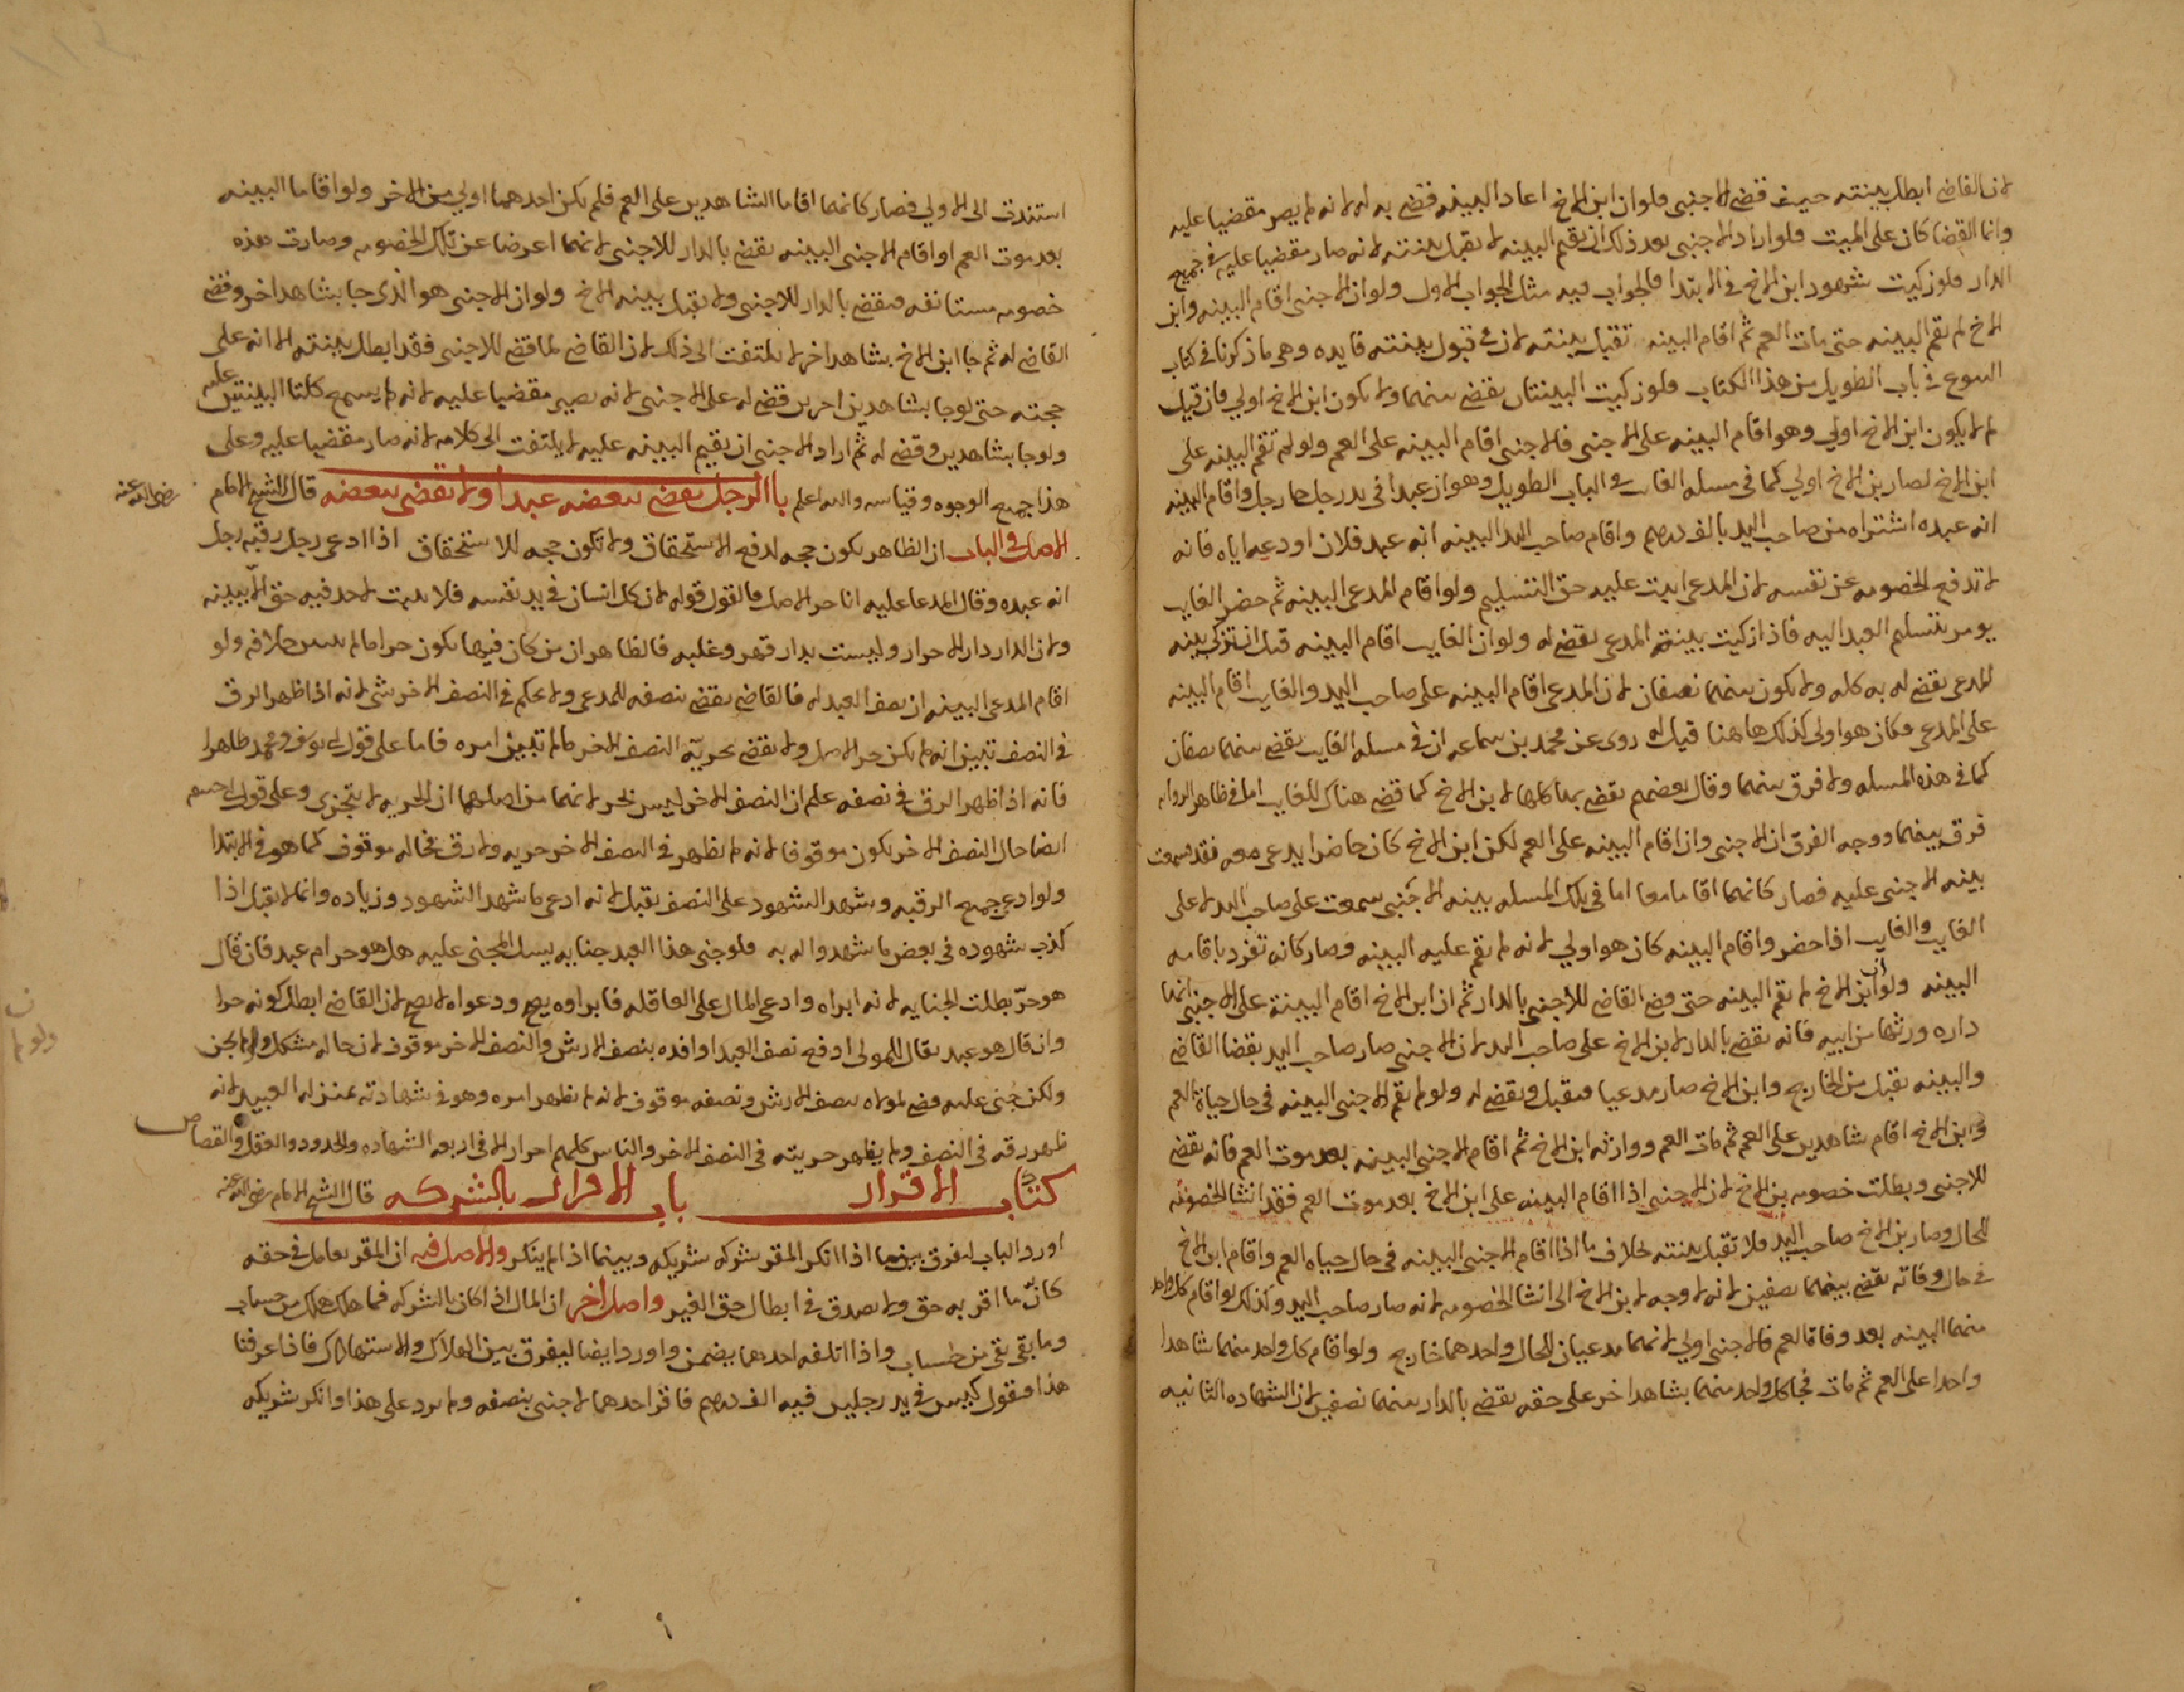 لان القاضي ابطل بينته حيث قضي للاجنبي فلو ان ابن الاخ اعاد البينه فقضي به له لانه لم يصر مقضيا عليه
وانما القضا كان على الميت فلو اراد الاجنبي بعد ذلك ان يقيم البينه لا تقبل بينته لانه صار مقضيا عليه في جميع
الدار فلو زكيت شهود ابن الاخ في الابتدا فالجواب فيه مثل الجواب الاول ولو ان الاجنبي اقام البينه وابن
الاخ لم يقم البينه حتى مات العم ثم اقام البينه تقبل بينته لان في قبول بينته فايده وهي ما ذكرنا في كتاب
البيوع في باب الطويل من هذا الكتاب فلو زكيت البينتان يقضي بينهما ولا يكون ابن الاخ اولي فان قيل
لم لا يكون ابن الاخ اولي وهو اقام البينه على الاجنبي فالاجنبي اقام البينه على العم ولو لم تقم البينه على
ابن الاخ لصار بن الاخ اولي كما في مسله الغايب في الباب الطويل وهو ان عبدا في يد رجل جا رجل واقام البينه
انه عبده اشتراه من صاحب اليد بالف درهم واقام صاحب اليد البينه انه عبد فلان اودعه اياه فانه
لا تدفع الخصومه عن نفسه لان المدعي اثبت عليه حق التسليم ولو اقام المدعي البينه ثم حضر الغايب
يومر بتسليم العبد اليه فاذا زكيت بينة المدعي يقضي له ولو ان الغايب اقام البينه قبل ان تزكي بينه
المدعي يقضي له به كله ولا يكون بينهما نصفان لان المدعي اقام البينه على صاحب اليد والغايب اقام البينه
على المدعي فكان هو اولي كذلك هاهنا قيل له روي عن محمد بن سماعه ان في مسله الغايب يقضي بينهما نصفان
كما في هذه المسله ولا فرق بينهما وقال بعضهم يقضي بها كلها لابن الاخ كما قضي هناك للغايب اما في ظاهر الروايه
فرق بينهما ووجه الفرق ان الاجنبي وان اقام البينه على العم لكن ابن الاخ كان حاضرا يدعي معه فقد سمعت
بينه الاجنبي عليه فصار كانهما اقاما معا اما في تلك المسله بينه الاجنبي سمعت على صاحب اليد لا على
الغايب والغايب اذا حضر واقام البينه كان هو اولي لانه لم تقم عليه البينه فصار كانه تفرد باقامه
البينه ولو ان ابن الاخ لم يقم البينه حتى قضي القاضي للاجنبي بالدار ثم ان ابن الاخ اقام البينة على الاجنبي انها
داره ورثها من ابيه فانه يقضي بالدار لابن الاخ على صاحب اليد لان الاجنبي صار صاحب اليد بقضا القاضي
والبينه تقبل من الخارج وابن الاخ صار مدعيا فتقبل ويقضي له ولو لم يقم الاجنبي البينه في حال حياة العم
وابن الاخ اقام شاهدين على العم ثم مات العم ووارثه ابن الاخ ثم اقام الاجنبي البينه بعد موت العم فانه يقضي
للاجنبي وبطلت خصومه بن الاخ لان الاجنبي اذا اقام البينه على ابن الاخ بعد موت العم فقد انشا الخصومه
للحال وصار بن الاخ صاحب اليد فلا تقبل بينته بخلاف ما اذا اقام الاجنبي البينه في حال حياه العم واقام ابن الاخ
في حال وفاته يقضي بينهما نصفين لانه لا وجه لابن الاخ الى انشا الخصومه لانه صار صاحب اليد وكذلك لو اقام كل واحد
منهما البينه بعد وفاة العم فالاجنبي اولي لانهما مدعيان للحال واحدهما خارج ولو اقام كل واحد منهما شاهدا
واحدا على العم ثم مات فجا كل واحد منهما بشاهد اخر على حقه يقضي بالدار بينهما نصفين لان الشهاده الثانيه
استندت الى الاولي فصار كانهما اقاما الشاهدين على العم فلم يكن احدهما اولي من الاخر ولو اقاما البينه
بعد موت العم او اقام الاجنبي البينه يقضي بالدار للاجنبي لانهما اعرضا عن تلك الخصومه وصارت هذه
خصومه مستانفه فيقضي بالدار للاجنبي ولا تقبل بينه الاخ ولو ان الاجنبي هو الذي جا بشاهد اخر وقضي
القاضي له ثم جا ابن الاخ بشاهد اخر لا يلتفت الى ذلك لان القاضي لما قضي للاجنبي فقد ابطل بينته الا انه على
حجته حتى لو جا بشاهدين اخرين قضي له على الاجنبي لانه يصير مقضيا عليه لانه لم يسمع كلتا البينتين عليه
ولو جا بشاهدين وقضي له ثم اراد الاجنبي ان يقيم البينه عليه لا يلتفت الى كلامه لانه صار مقضيا عليه وعلى
هذا جميع الوجوه وقياسه والله اعلم باب الرجل يقضي ببعضه عبدا ولا يقضي ببعضه قال الشيخ الامام رضي الله عنه
الاصل في الباب ان الظاهر يكون حجه لدفع الاستحقاق ولا تكون حجه للاستحقاق اذا ادعي رجل رقبه رجل
انه عبده وقال المدعا عليه انا حر الاصل فالقول قوله لان كل انسان في يد نفسه فلا يثبت لاحد فيه حق الا ببينه
ولان الدار دار الاحرار وليست بدار قهر وغلبه فالظاهر ان من كان فيها يكون حرا ما لم يتبين خلافه ولو
اقام المدعي البينه ان نصف العبد له فالقاضي يقضي بنصفه للمدعي ولا يحكم في النصف الاخر بشي لانه اذا ظهر الرق
في النصف تبين انه لم يكن حر الاصل ولا يقضي بحريّه النصف الاخر ما لم تبين امره فاما على قول ابي يوسف ومحمد ظاهرا
فانه اذا ظهر الرق في نصفه علم ان النصف الاخر ليس بحر لانهما من اصلهما ان الحريه لا يتجزي وعلى قول ابي حنيفه
ايضا حال النصف الاخر يكون موقوفا لانه لم يظهر في النصف الاخر حريه ولا رق فحاله موقوف كما هو في الابتدا
ولو ادعي جميع الرقبه وشهد الشهود على النصف تقبل لانه ادعي ما شهد الشهود وزياده وانما لا تقبل اذا
كذب شهوده في بعض ما شهدوا له به فلو جني هذا العبد جنايه يسل المجني عليه هل هو حر ام عبد فان قال
هو حرّ بطلت الجنايه لانه ابراه وادعي المال على العاقله فابراوه يصح ودعواه لا تصح لان القاضي ابطل كونه حرا
وان قال هو عبد يقال للمولى ادفع نصف العبد او افده بنصف الارش والنصف الاخر موقوف لان حاله مشكل ولو لم يجن
ولكن جُني عليه قضي لمولاه بنصف الارش ونصفه موقوف لانه لم يظهر امره وهو في شهادته بمنزله العبيد لانه
ظهر رقه في النصف ولم يظهر حريته في النصف الاخر والناس كلهم احرار الا في اربعه الشهاده والحدود والعقل والقصاص
كتاب الاقرار باب الاقرار بالشركه قال الشيخ الامام رضي الله عنه
اورد الباب ليفرق بينما اذا انكر المقر شركه شريكه وبينما اذا لم ينكر والاصل فيه ان المقر يعامل في حقه
كانّ ما اقر به حق ولا يصدق في ابطال حق الغير واصل اخر ان المال اذا كان بالشركه فما هلك هلك من حساب
وما بقي بقي من حساب واذا اتلفه احدهما يضمن واورد ايضا ليفرق بين الهلاك والاستهلاك فاذا عرفنا
هذا فنقول كيس في يد رجلين فيه الف درهم فاقر احدهما لاجنبي بنصفه ولم يزد على هذا وانكر شريكه